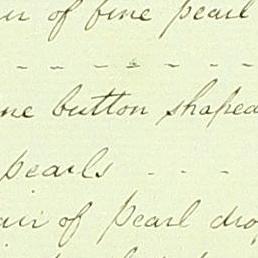 of fine pearl
button shaped
pearls - - -
air of Pearl drop